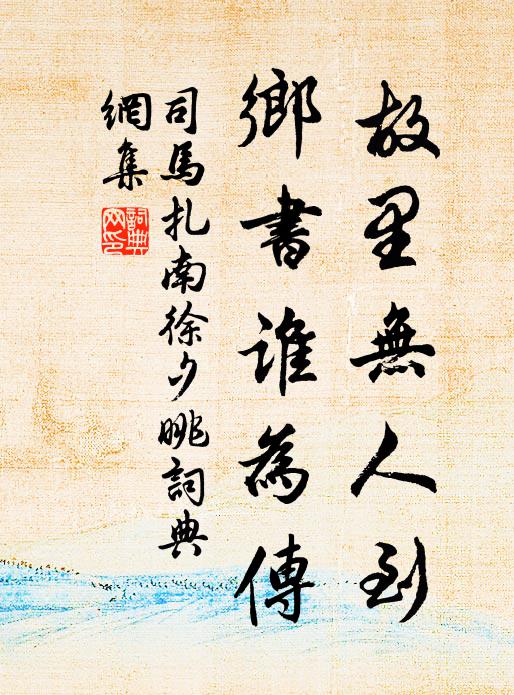 故里無人到
鄉書誰為傳
司馬扎南徐夕眺詞典
網集
詞典
网印